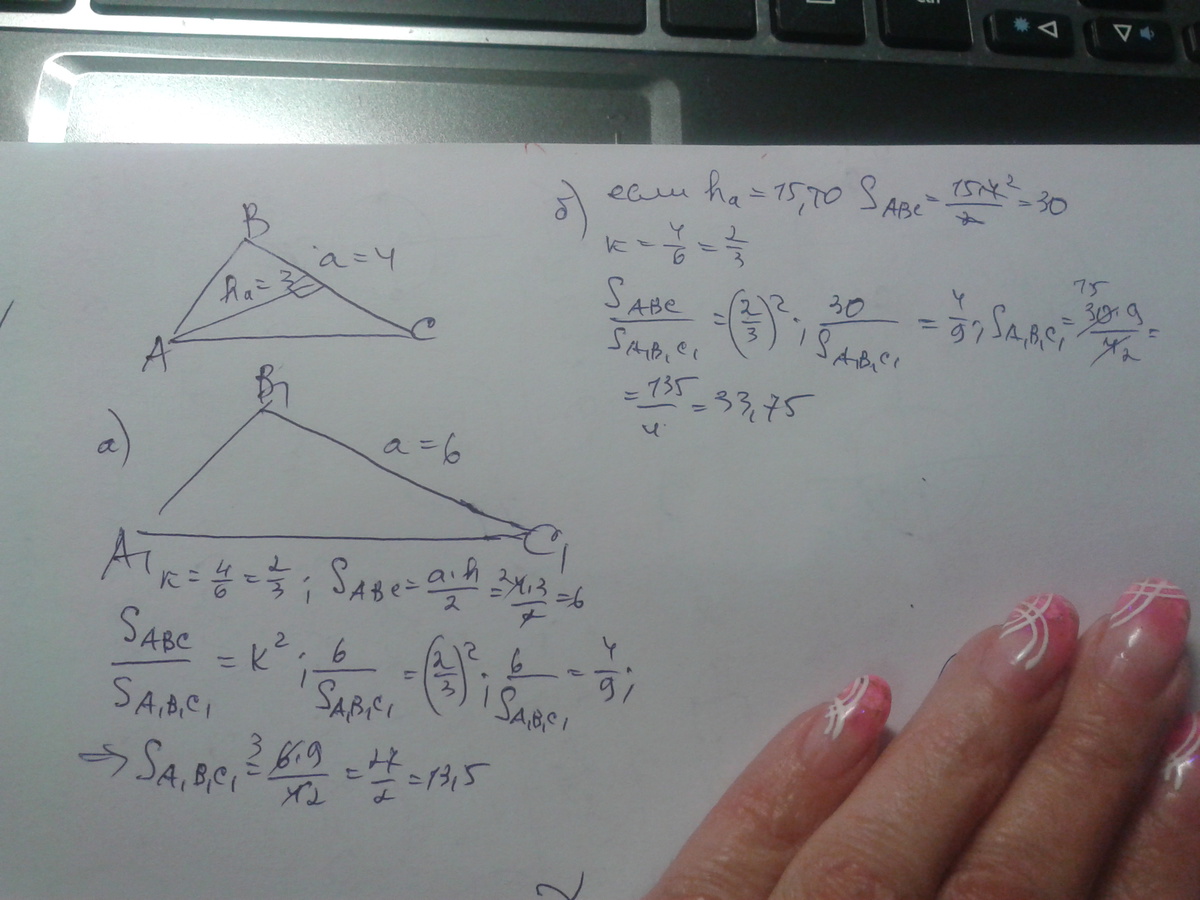 B
a = 4
hₐ = 3
A
C
а)
B₁
a = 6
A₁
C₁
к = 4/6 = 2/3 ; S ABC = a·h/2 = 4·3/2 = 6
S ABC / S A₁B₁C₁ = K² ; 6 / S A₁B₁C₁ = (2/3)² ; 6 / S A₁B₁C₁ = 4/9 ;
⇒ S A₁B₁C₁ = 6·9/4 = 27/2 = 13,5
б) если hₐ = 15, то S ABC = 15·4/2 = 30
к = 4/6 = 2/3
S ABC / S A₁B₁C₁ = (2/3)² ; 30 / S A₁B₁C₁ = 4/9 ; S A₁B₁C₁ = 30·9/4 =
= 135/4 = 33,75